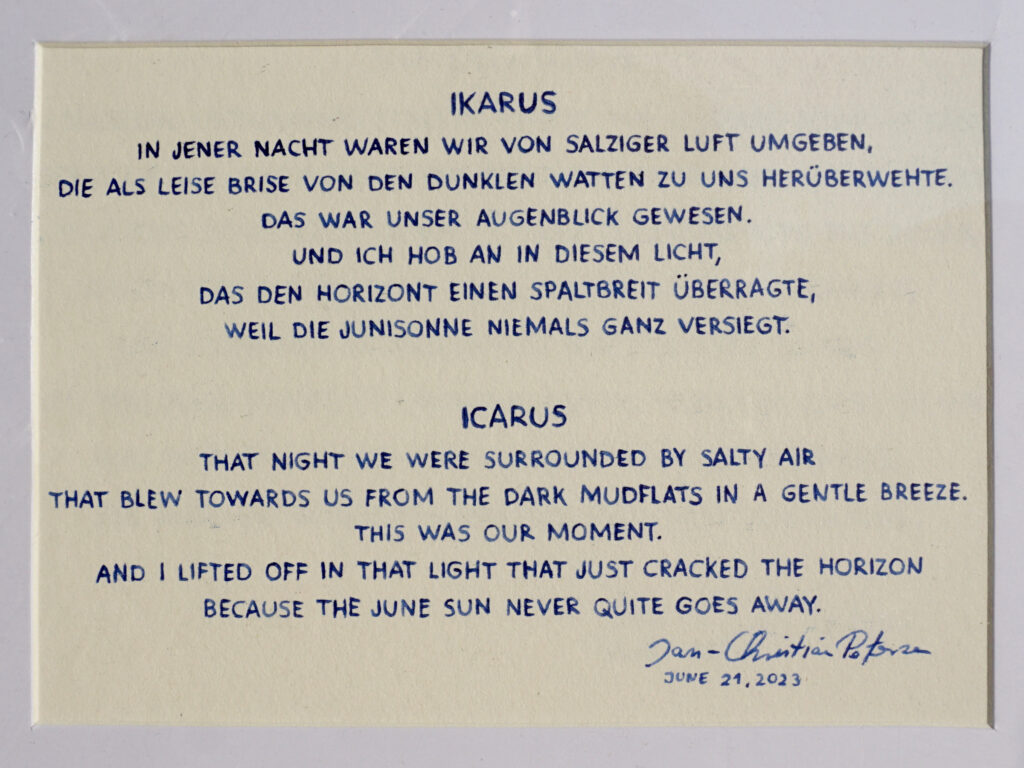 IKARUS
IN JENER NACHT WAREN WIR VON SALZIGER LUFT UMGEBEN,
DIE ALS LEISE BRISE VON DEN DUNKLEN WATTEN ZU UNS HERÜBERWEHTE.
DAS WAR UNSER AUGENBLICK GEWESEN.
UND ICH HOB AN IN DIESEM LICHT,
DAS DEN HORIZONT EINEN SPALTBREIT ÜBERRAGTE,
WEIL DIE JUNISONNE NIEMALS GANZ VERSIEGT.
ICARUS
THAT NIGHT WE WERE SURROUNDED BY SALTY AIR
THAT BLEW TOWARDS US FROM THE DARK MUDFLATS IN A GENTLE BREEZE.
THIS WAS OUR MOMENT.
AND I LIFTED OFF IN THAT LIGHT THAT JUST CRACKED THE HORIZON
BECAUSE THE JUNE SUN NEVER QUITE GOES AWAY.
Jan-Christian Petersen
JUNE 21, 2023